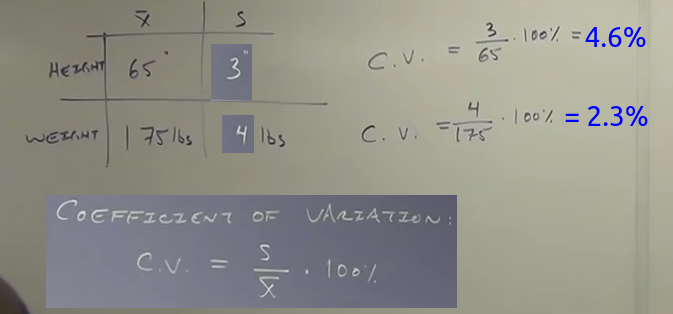 x̄ S
HEIGHT 65" 3"
WEIGHT 175 lbs 4 lbs
C.V. = 3/65 · 100% = 4.6%
C.V. = 4/175 · 100% = 2.3%
COEFFICIENT OF VARIATION:
C.V. = S/x̄ · 100%